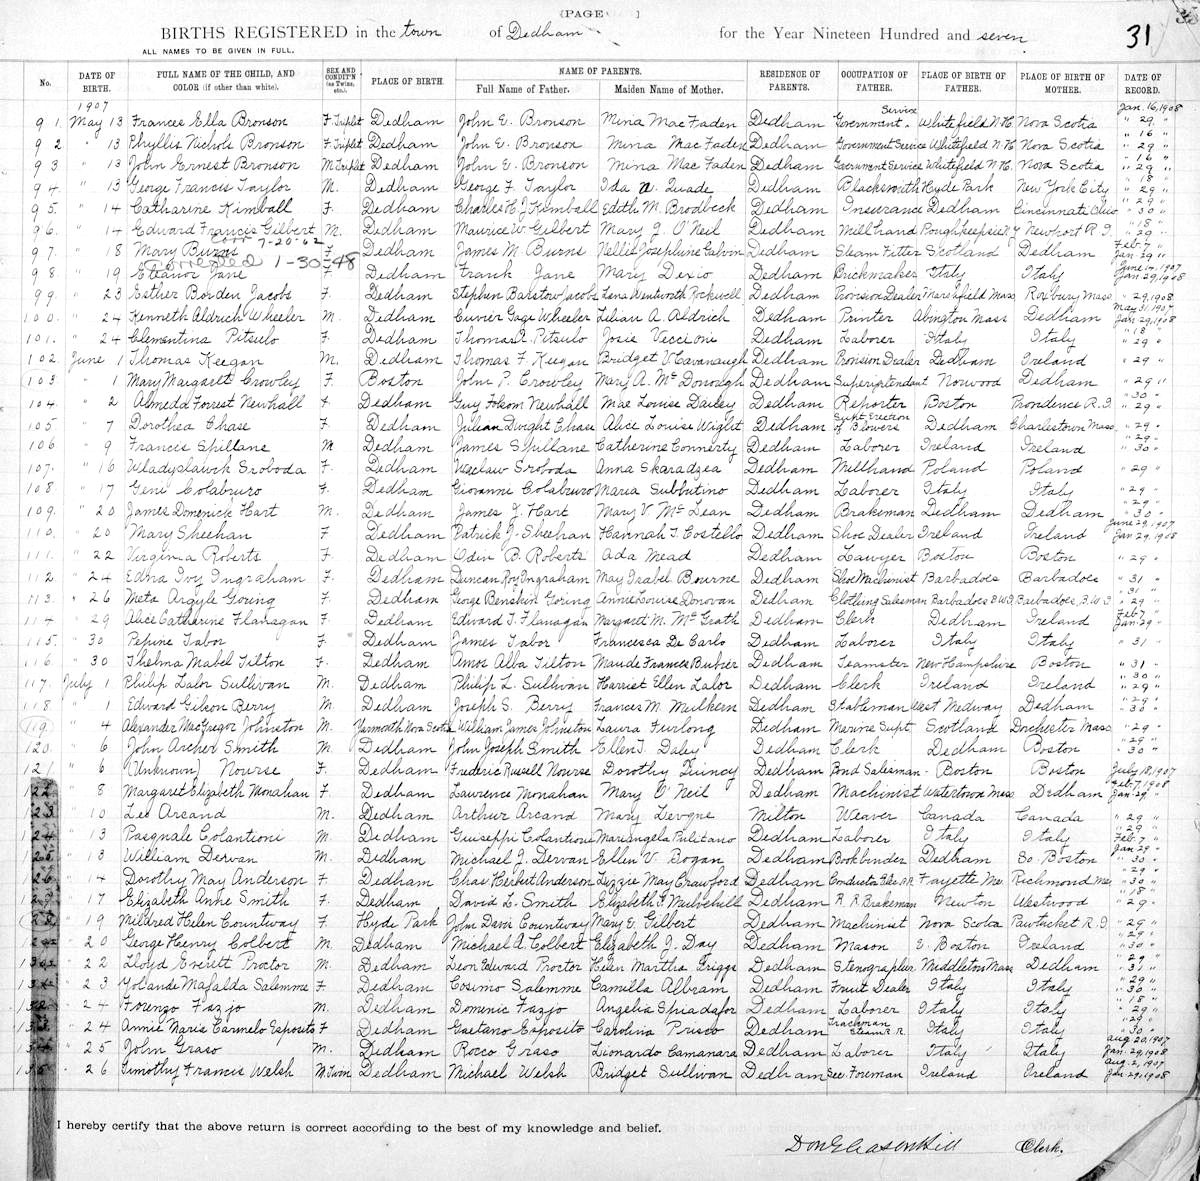 (PAGE ]
BIRTHS REGISTERED in the town of Dedham for the Year Nineteen Hundred and seven 31
ALL NAMES TO BE GIVEN IN FULL.
No. DATE OF BIRTH. FULL NAME OF THE CHILD, AND COLOR (if other than white). SEX AND CONDIT'N (as Twins, etc.). PLACE OF BIRTH. NAME OF PARENTS. Full Name of Father. Maiden Name of Mother. RESIDENCE OF PARENTS. OCCUPATION OF FATHER. PLACE OF BIRTH OF FATHER. PLACE OF BIRTH OF MOTHER. DATE OF RECORD.
1907 Jan. 16, 1908
91. May 13 Frances Ella Bronson F Triplet Dedham John E. Bronson Mina MacFaden Dedham Government Service Whitefield N.H. Nova Scotia " 29 "
92 " 13 Phyllis Nichols Bronson F Triplet Dedham John E. Bronson Mina MacFaden Dedham Government Service Whitefield N.H. Nova Scotia " 16 " " 29 "
93 " 13 John Ernest Bronson M Triplet Dedham John E. Bronson Mina MacFaden Dedham Government Service Whitefield N.H. Nova Scotia " 16 " " 29 "
94. " 13 George Francis Taylor M. Dedham George F. Taylor Ida A. Quade Dedham Blacksmith Hyde Park New York City " 18 " " 29 "
95. " 14 Catharine Kimball F. Dedham Charles H. J. Kimball Edith M. Brodbeck Dedham Insurance Dedham Cincinnati Ohio " 29 " " 30 "
96. " 14 Edward Francis Gilbert M. Dedham Maurice W. Gilbert Mary J. O'Neil Dedham Mill hand Poughkeepsie N.Y Newport R.I. " 18 " " 29 "
Corr 7-20-62
97. " 18 Mary Burns F Dedham James M. Burns Nellie Josephine Galvin Dedham Steam Fitter Scotland Dedham Feb 7 " Jan 29 "
Corrected 1-30-48
98. " 19 Eleanor Jane F Dedham Frank Jane Mary Dexio Dedham Brickmaker Italy Italy June 17, 1907 Jan 29, 1908
99. " 23 Esther Borden Jacobs F. Dedham Stephen Barstow Jacobs Lena Wentworth Rockwell Dedham Provision Dealer Marshfield Mass Roxbury Mass " 29, 1908
100. " 24 Kenneth Aldrich Wheeler M. Dedham Cuvier Gage Wheeler Lilian A. Aldrich Dedham Painter Abington Mass Dedham May 31, 1907 Jan 29, 1908
101. " 24 Clementina Pitsulo F. Dedham Thomas Pitsulo Josie Veccione Dedham Laborer Italy Italy " 18 " " 29 "
102. June 1 Thomas Keegan M. Dedham Thomas F. Keegan Bridget V Cavanaugh Dedham Provision Dealer Dedham Ireland " 29 "
103. " 1 Mary Margaret Crowley F. Boston John P. Crowley Mary A. McDonough Dedham Superintendant Norwood Dedham " 29 "
104. " 2 Almeda Forrest Newhall Dedham Guy Folsom Newhall Mae Louise Dailey Dedham Reporter Boston Providence R.I. " 30 " " 29 "
105 " 7 Dorothea Chase F. Dedham Julian Dwight Chase Alice Louise Wight Dedham Supt. Erection of Blowers Dedham Charlestown Mass " 29 "
106 " 9 Francis Spillane M Dedham James Spillane Catherine Connerty Dedham Laborer Ireland Ireland " 29 " " 30 "
107. " 16 Wladyslawik Sroboda F. Dedham Waclaw Sroboda Anna Skaradzea Dedham Millhand Poland Poland " 29 "
108. " 17 Geni Colabruro F. Dedham Giovanne Colabruro Maria Subbutino Dedham Laborer Italy Italy " 29 "
109. " 20 James Domenick Hart M. Dedham James J. Hart Mary V. McLean Dedham Brakeman Dedham Dedham " 29 " " 30 "
110. " 20 Mary Sheehan F Dedham Patrick J. Sheehan Hannah T. Costello Dedham Shoe Dealer Ireland Ireland June 29, 1907 Jan 29, 1908
111. " 22 Virginia Roberts F Dedham Odin B. Roberts Ada Mead Dedham Lawyer Boston Boston " 29 "
112. " 24 Edna Ivy Ingraham F. Dedham Duncan Roy Ingraham May Isabel Bourne Dedham Shoe Machinist Barbadoes Barbadoes " 31 "
113. " 26 Meta Argyle Goring F. Dedham George Benskin Goring Annie Louise Donovan Dedham Clothing Salesman Barbadoes B.W.I. Barbadoes, B.W.I " 31 " " 29 "
114 " 29 Alice Catharine Flanagan F Dedham Edward T. Flanagan Margaret M. McGrath Dedham Clerk Dedham Ireland Feb 7 " Jan 29 "
115. " 30 Pepine Tabor F Dedham James Tabor Francesca De Carlo Dedham Laborer Italy Italy " 31 "
116. " 30 Thelma Mabel Tilton F. Dedham Amos Alba Tilton Maude Frances Bubier Dedham Teamster New Hampshire Boston " 31 "
117. July 1 Philip Lalor Sullivan M. Dedham Philip L. Sullivan Harriet Ellen Lalor Dedham Clerk Ireland Ireland " 30 " " 29 "
118 " 1 Edward Gibson Berry M. Dedham Joseph S. Berry Frances M. Mulkern Dedham Stableman West Medway Dedham " 29 " " 30 "
119. " 4 Alexander MacGregor Johnston M. Yarmouth Nova Scotia William James Johnston Laura Furlong Dedham Marine Supt Scotland Dorchester Mass " 29 "
120. " 6 John Archer Smith M. Dedham John Joseph Smith Ellen T. Daley Dedham Clerk Dedham Boston " 29 " " 30 "
121 " 6 (Unknown) Nourse F. Dedham Frederic Russell Nourse Dorothy Quincy Dedham Bond Salesman Boston Boston July 18, 1907
122 " 8 Margaret Elizabeth Monahan F Dedham Lawrence Monahan Mary O'Neil Dedham Machinist Watertown Mass Dedham Feb. 7, 1908 Jan. 29 "
123 " 10 Leo Arcand M. Dedham Arthur Arcand Mary Levogne Milton Weaver Canada Canada " 29 "
124 " 13 Pasquale Colantioni M. Dedham Guiseppi Colantioni Mariangela Pulitano Dedham Laborer Italy Italy " 29 " Feb. 7 "
125 " 13 William Dervan M. Dedham Michael J. Dervan Ellen V. Bogan Dedham Bookbinder Dedham So. Boston Jan 29 " " 30 "
126 " 14 Dorothy May Anderson F. Dedham Chas Herbert Anderson Lizzie May Crawford Dedham Conductor Elec. R.R. Fayette Me. Richmond Me. " 29 " " 30 "
127 " 17 Elizabeth Anne Smith F. Dedham David L. Smith Elizabeth F. Dedham R.R. Brakeman Newton Westwood " 18 " " 29 "
128 " 19 Mildred Helen Countway F Hyde Park John Davis Countway Mary E. Gilbert Dedham Machinist Nova Scotia Pawtucket R.I. " 29 "
129 " 20 George Henry Colbert M. Dedham Michael A. Colbert Elizabeth J. Day Dedham Mason E. Boston Ireland " 29 " " 30 "
130 " 22 Lloyd Everett Proctor M. Dedham Leon Edward Proctor Helen Martha Griggs Dedham Stenographer Middleton Mass Dedham " 29 " " 31 "
131 " 23 Yolande Mafalda Salemme F Dedham Cosimo Salemme Camilla Albram Dedham Fruit Dealer Italy Italy " 29 " " 30 "
132 " 24 Forenzo Fazjo M. Dedham Domenic Fazjo Angelia Spiadafor Dedham Laborer Italy Italy " 18 " " 29 "
133 " 24 Annie Maria Carmelo Esposito F Dedham Gaetano Esposito Carolina Prisco Dedham Trackman Steam R.R. Italy Italy " 29 " " 30 "
134 " 25 John Graso M. Dedham Rocco Graso Lionardo Camanara Dedham Laborer Italy Italy Aug 20, 1907 Jan. 29, 1908
135 " 26 Timothy Francis Welsh M. Twin Dedham Michael Welsh Bridget Sullivan Dedham Sec. Foreman Ireland Ireland Aug 2, 1907 Jan. 29, 1908
I hereby certify that the above return is correct according to the best of my knowledge and belief.
Don Gleason Hill Clerk.